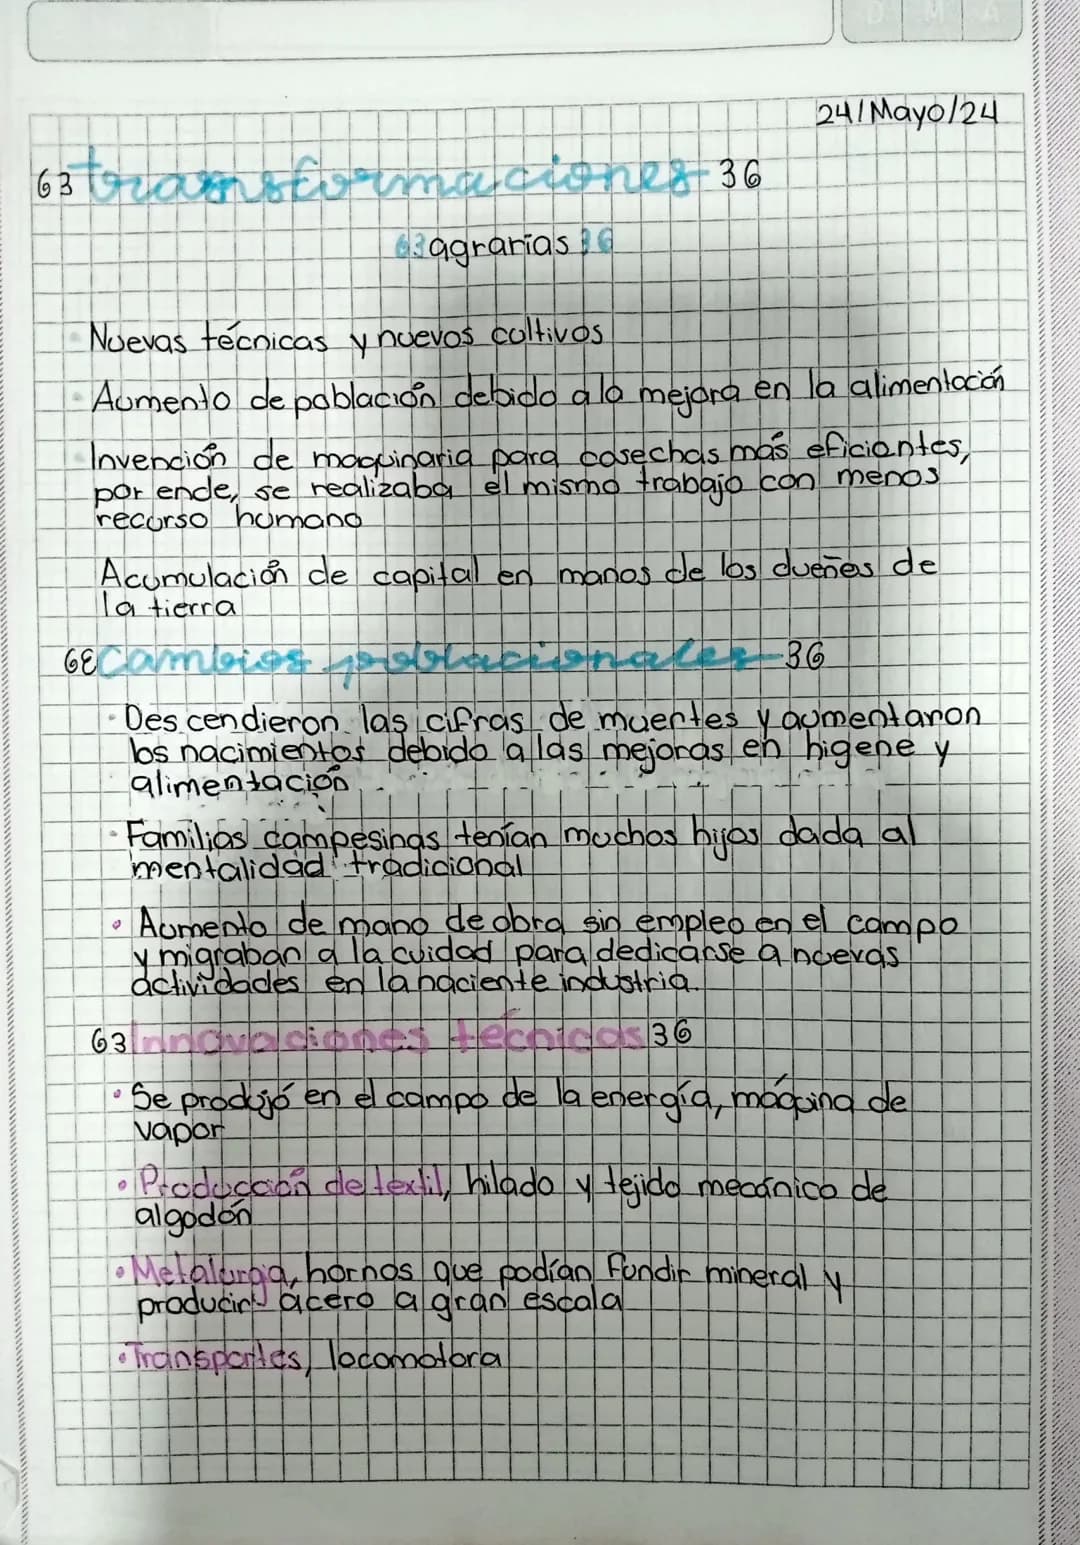 D M A
24/Mayo/24
63 transformaciones 36
63 agrarias 36
Nuevas técnicas y nuevos cultivos
Aumento de población debido a la mejora en la alimentación
Invención de maquinaria para cosechas más eficiantes,
por ende, se realizaba el mismo trabajo con menos
recurso humano
Acumulación de capital en manos de los dueños de
la tierra
63 Cambios poblacionales 36
Descendieron las cifras de muertes y aumentaron
los nacimientos debido a las mejoras en higene y
alimentación
Familias campesinas tenían muchos hijos dada al
mentalidad tradicional
Aumento de mano de obra sin empleo en el campo
y migraban a la cuidad para dedicarse a nuevas
actividades en la naciente industria.
63 Innovaciones técnicas 36
Se produjó en el campo de la energía, máquina de
vapor
Producción de textil, hilado y tejido mecánico de
algodón
Metalurgia, hornos que podían fundir mineral y
producir acero a gran escala
Transportes, locomotora